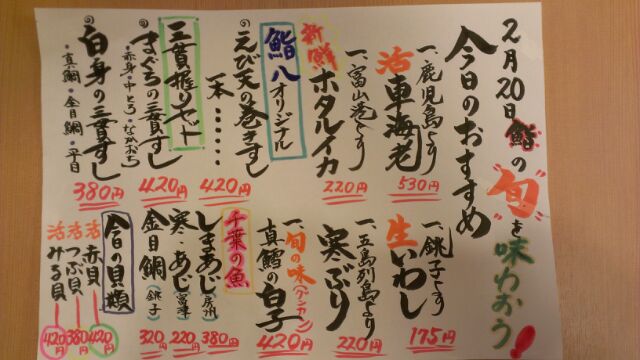 2月20日鮨の"旬"を味わおう!
今日のおすすめ
一、鹿児島より
活車海老
530円
一、富山港より
新鮮ホタルイカ
220円
鮨八オリジナル
のえび天の巻きすし
一本‥‥‥
420円
三貫握りセット
のまぐろの三貫すし
・赤身・中とろ・なかおち
420円
の白身の三貫すし
・真鯛・金目鯛・平目
380円
一、銚子より
生いわし
175円
一、五島列島より
寒ぶり
220円
一、旬の味(グンカン)
真鱈の白子
420円
千葉の魚
しまあじ(房州)
380円
寒・あじ(富津)
220円
金目鯛(銚子)
320円
今日の貝類
活赤貝
420円
活つぶ貝
380円
活みる貝
420円